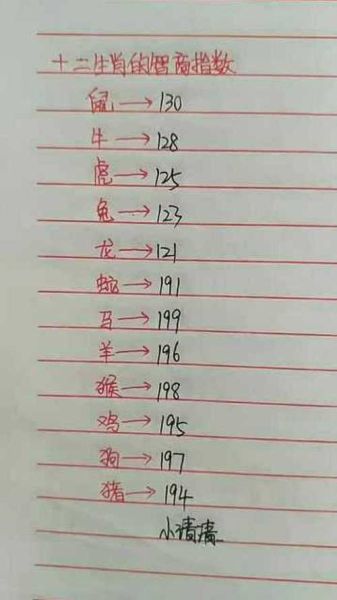 十二生肖的智商指数
鼠→130
牛→128
虎→125
兔→123
龙→121
蛇→191
马→199
羊→196
猴→198
鸡→195
狗→197
猪→194